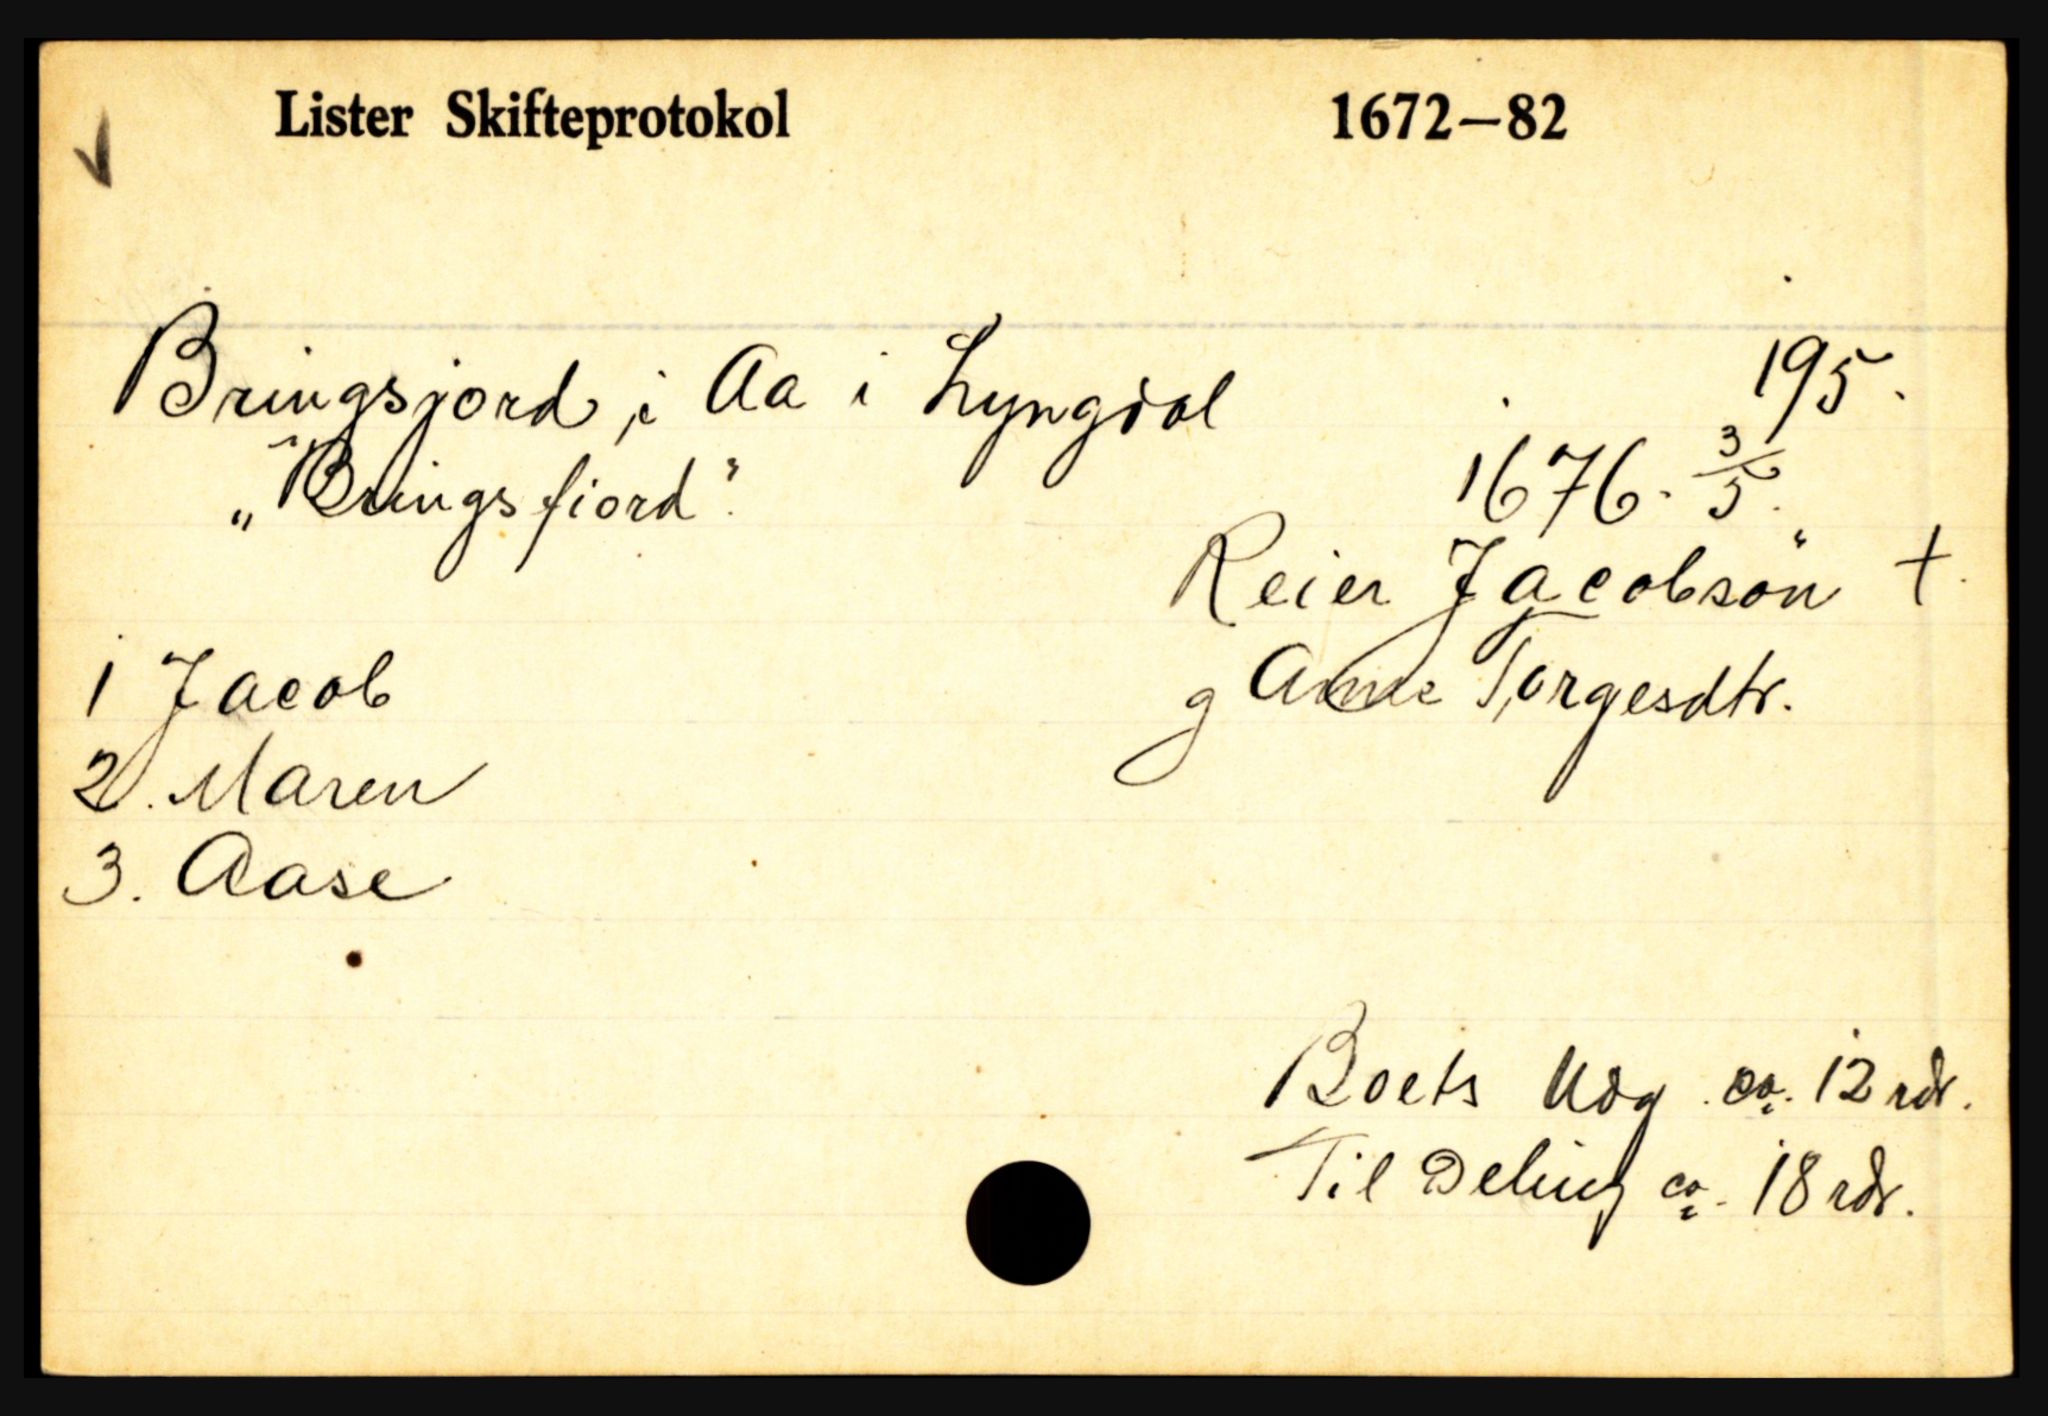 Lister Skifteprotokol 1672–82
Bringsjord, i Aa i Lyngdal 195.
„Bringsfiord". 1676. 3/5.
Reier Jacobsøn †.
g Anne Torgesdtr.
1 Jacob
2. Maren
3. Aase
Boets Udg. ca. 12 rdr.
Til Deling ca. 18 rdr.